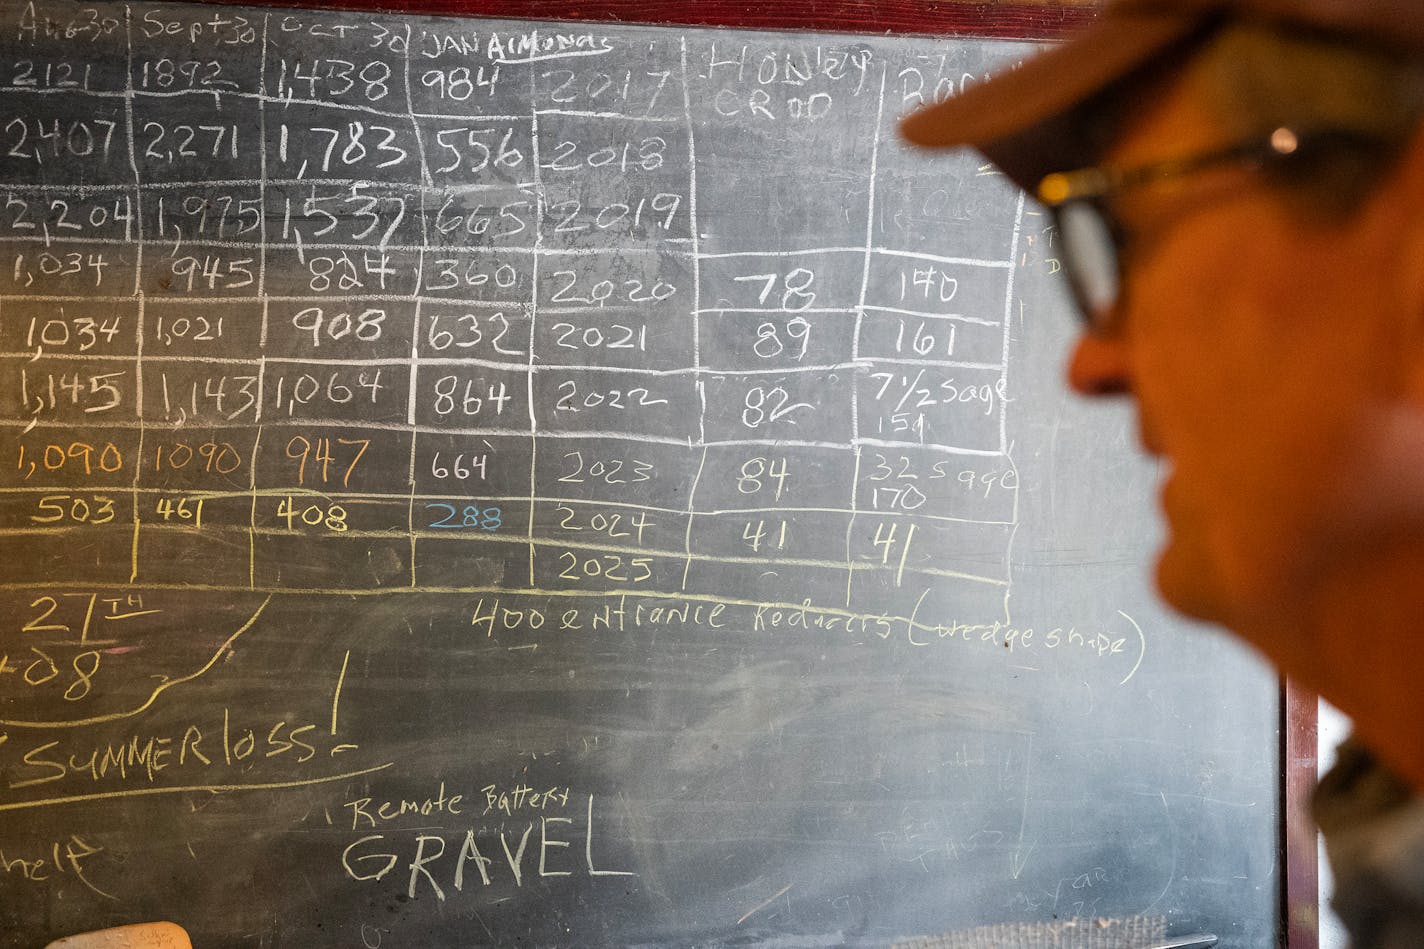 Aug 30 Sept 30 Oct 30 JAN ALMONDS HONEY CROP
2121 1892 1,438 984 2017
2,407 2,271 1,783 556 2018
2,204 1,975 1,537 665 2019
1,034 945 824 360 2020 78 140
1,034 1,021 908 632 2021 89 161
1,145 1,143 1,064 864 2022 82 7 1/2 sage
1,090 1090 947 664 2023 84 32 sage
170
503 461 408 288 2024 41 41
2025
400 entrance Reducers (wedge shape)
27TH
08
SUMMER loss!
Remote Battery
GRAVEL